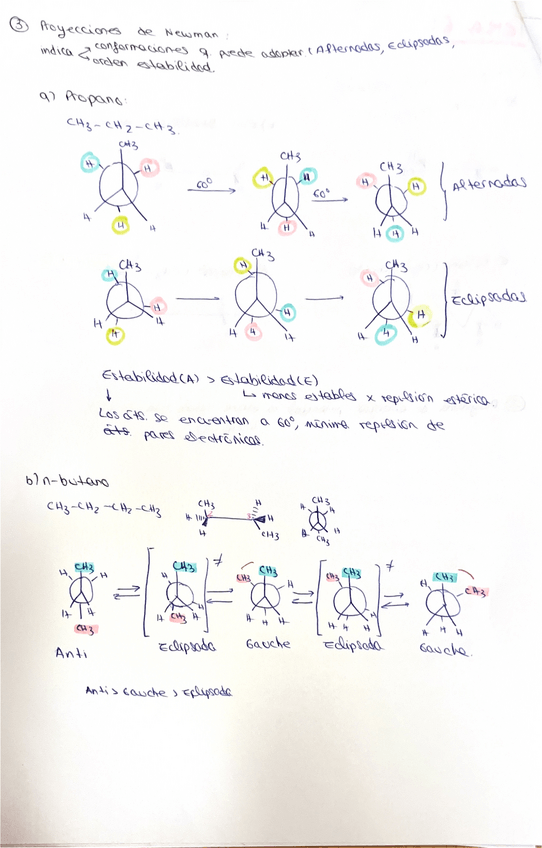 ③ Proyecciones de Newman:
indica conformaciones q puede adoptar (Alternadas, Eclipsadas,
orden estabilidad.
a) Propano:
CH3-CH2-CH3.
CH3 CH3 CH3
H H 60° H H 60° H H Alternadas
H H H H H H H H H
CH3 CH3 CH3
H H H
H H H H Eclipsadas
H H H H H H H H
Estabilidad(A) > Estabilidad(E)
↓ ↳ menos estables x repulsión estérica.
Los áts. se encuentran a 60°, mínima repulsión de
áts. pares electrónicos.
b) n-butano
CH3-CH2-CH2-CH3
CH3 H CH3
H H H H H
H CH3 H H
CH3
CH3 CH3 CH3 CH3 CH3 CH3 CH3 CH3
H H H H H H CH3
H H H CH3 H H H H H H H H H H
CH3
Anti Eclipsada Gauche Eclipsada Gauche.
Anti > Gauche > Eplipsada